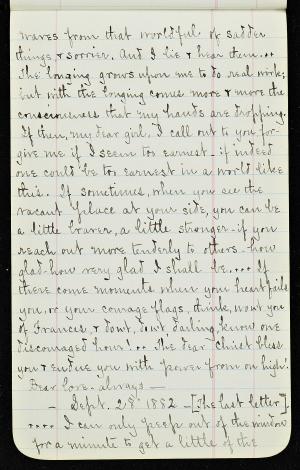 waves from that worldful of sadder
things, & sorrier. And I lie & hear them...
The longing grows upon me to do real work;
but with the longing comes more & more the
consciousness that my hands are dropping.
If then, my dear girl, I call out to you for-
give me if I seem too earnest - if indeed
one could be too earnest in a world like
this. If sometimes, when you see the
vacant place at your side, you can be
a little braver, a little stronger - if you
reach out more tenderly to others - how
glad - how very glad I shall be.... If
there come moments when your heart fails
you, or your courage flags, think, wont you
of Frances, & dont, dont darling, know one
discouraged hour!... The dear Christ bless
you & endue you with power from on high!
Dear love - always —
- Sept. 28th 1882 - [The last letter].
.... I can only peep out of the window
for a minute to get a little of the